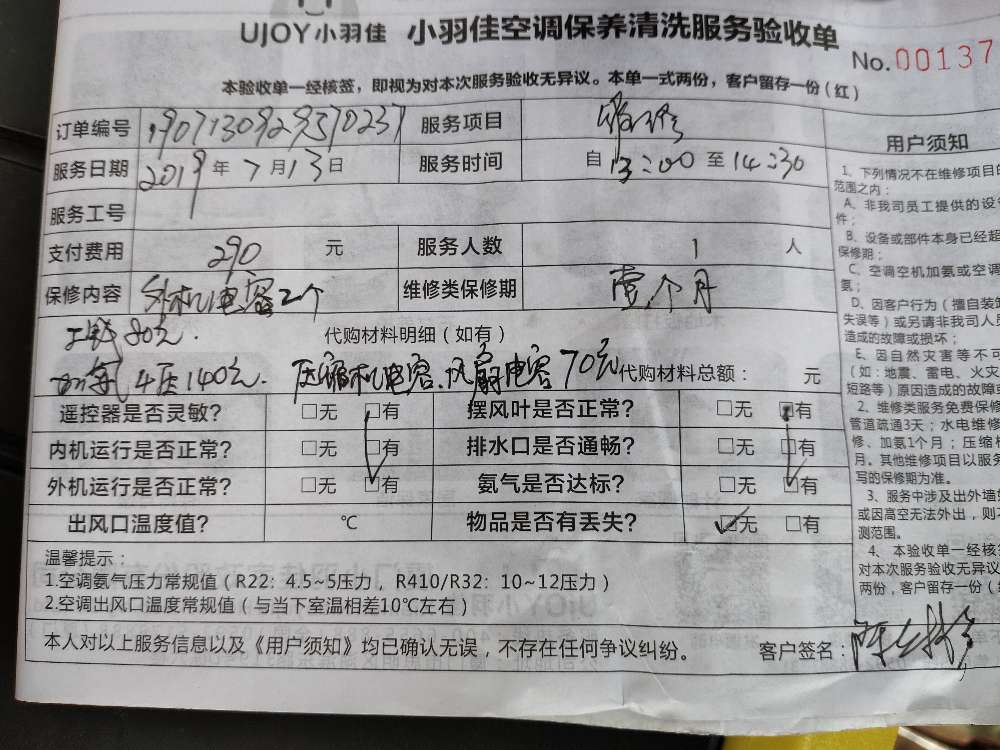 UJOY小羽佳 小羽佳空调保养清洗服务验收单
No.00137
本验收单一经核签，即视为对本次服务验收无异议。本单一式两份，客户留存一份（红）
订单编号 服务项目 维修
服务日期 2019年7月13日 服务时间 自13:00至14:30
服务工号
支付费用 290 元 服务人数 1 人
保修内容 外机电容2个 维修类保修期 壹个月
工钱80元. 代购材料明细（如有）
4压140元. 压缩机电容.风扇电容70元 代购材料总额： 元
遥控器是否灵敏？ □无 □有 摆风叶是否正常？ □无 □有
内机运行是否正常？ □无 □有 排水口是否通畅？ □无 □有
外机运行是否正常？ □无 □有 氨气是否达标？ □无 □有
出风口温度值？ ℃ 物品是否有丢失？ ☑无 □有
温馨提示：
1.空调氨气压力常规值（R22：4.5~5压力，R410/R32：10~12压力）
2.空调出风口温度常规值（与当下室温相差10℃左右）
本人对以上服务信息以及《用户须知》均已确认无误，不存在任何争议纠纷。 客户签名：
用户须知
1、下列情况不在维修项目的
范围之内：
A、非我司员工提供的设
件；
B、设备或部件本身已经超
保修期；
C、空调空机加氨或空调
氨；
D、因客户行为（擅自装
失误等）或另请非我司人员
造成的故障或损坏；
E、因自然灾害等不可
（如：地震、雷电、火灾
短路等）原因造成的故障
2、维修类服务免费保修
管道疏通3天；水电维修
修、加氨1个月；压缩
月。其他维修项目以服务
写的保修期为准。
3、服务中涉及出外墙
或因高空无法外出，则不
测范围。
4、本验收单一经核签
对本次服务验收无异议
两份，客户留存一份（